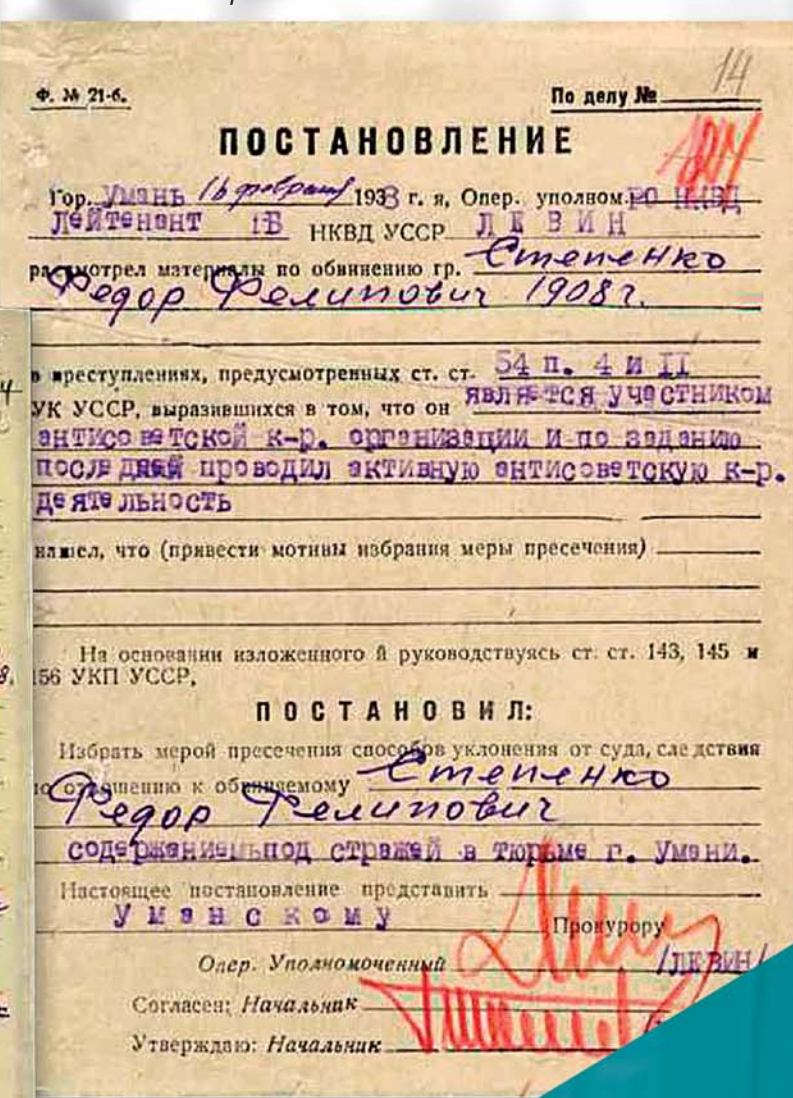 14
Ф. № 21-б. По делу №
ПОСТАНОВЛЕНИЕ
Гор. Умань 16 февраля 1938 г. я, Опер. уполном. РО НКВД
Лейтенант ГБ НКВД УССР ЛЕВИН
рассмотрел материалы по обвинению гр. Степенко
Федор Фелипович 1908 г.
в преступлениях, предусмотренных ст. ст. 54 п. 4 и II
УК УССР, выразившихся в том, что он является участником
антисоветской к-р. организации и по заданию
последней проводил активную антисоветскую к-р.
деятельность
нашел, что (привести мотивы избрания меры пресечения)
На основании изложенного и руководствуясь ст. ст. 143, 145 и
156 УКП УССР,
ПОСТАНОВИЛ:
Избрать мерой пресечения способов уклонения от суда, следствия
по отношению к обвиняемому Степенко
Федор Фелипович
содержаниемпод стражей в тюрьме г. Умани.
Настоящее постановление представить
Уманскому Прокурору
Опер. Уполномоченный /ЛЕВИН/
Согласен; Начальник
Утверждаю: Начальник